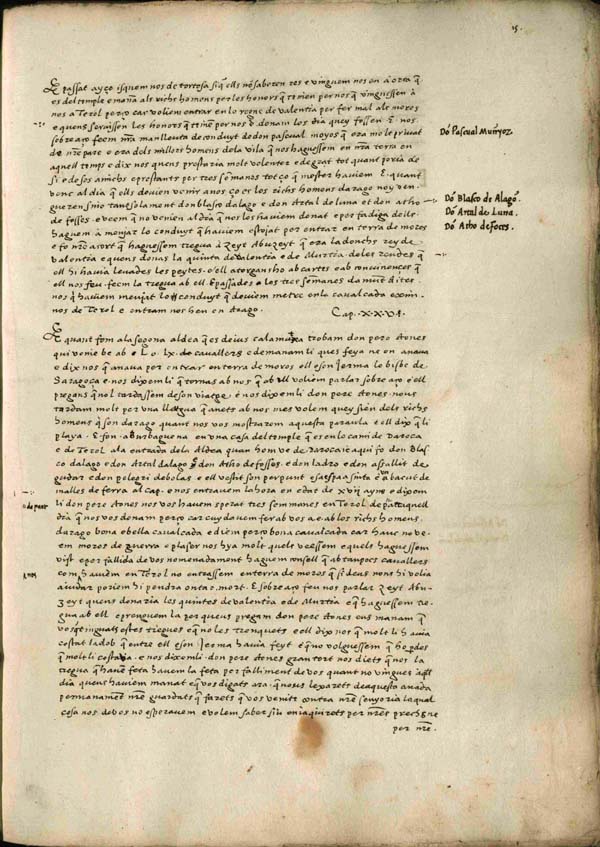 15.
E passat ayço isquem nos de tortosa si q̃ ells no saberen res e vinguem nos en a orta q̃
es del temple e mana als richs homens per les honors que tenien per nos q̃ vinguessen a
nos a Terol perço car voliem entrar en lo regne de valentia per fer mal als moros
e quens servissen les honors q̃ tenien per nos e donam los dia quey fossen E nos
sobre aço feem nr̃a manlleuta de conduyt de don pascual moyos q̃ era molt privat
de nr̃e pare e era dels millors homens dela vila q̃ nos haguessem en nr̃a terra en
aquell temps e dix nos quens prestaria molt volenter e de grat tot quant poria de
si e de sos amichs e prestans per tres semanes tot ço q̃ mester haviem E quant
venc al dia q̃ ells devien venir a nos ço es los richs homens darago noy ven-
gueren sino tansolament don blasco dalago e don Artal de luna et don atho
de fosses. e veem q̃ no venien al dia q̃ nos los haviem donat e per fadiga dells
haguem a menjar lo conduyt q̃ haviem estojat per entrar en terra de moros
e fo nr̃e acort q̃ haguessem tregua a Zeyt Abuzeyt q̃ era ladonchs rey de
valentia e quens donas la quinta de valentia e de Murtia deles rendes q̃
ell hi havia levades les peytes. e ell atorgansho ab cartes e ab convinences q̃
ell nos feu. feem la tregua ab ell. E passades les tres semanes damunt dites
nos q̃ haviem menjat lo conduyt q̃ deviem metre en la cavalcada exim
nos de Terol e entram nos hen en Arago.
Cap. X.X.V.I.
E quant fom ala segona aldea q̃ es deius calamuxa trobam don pero Aones
qui venie be ab L. o. lx. cavallers e demanam li ques feya ne on anava
e dix nos q̃ anava per entrar en terra de moros ell e son jerma lo bisbe de
Saragoça e nos dixem li q̃ tornas ab nos q̃ ab ell voliem parlar sobre aço e ell
pregans q̃ nol tardassem de son viatge e nos dixem li don pero Aones. nous
tardam molt per una llegua q̃ anets ab nos mes volem quey sien dels richs
homens q̃ son darago quant nos vos mostrarem aquesta paraula e ell dix q̃ li
playa. E fon a Burbaguena en una casa del temple q̃ es en lo cami de Daroca
e de Terol ala entrada dela Aldea quan hom ve de Daroca e aqui fo don Blas
co dalago e don Artal dalago e don Atho de fosses. e don ladro e don assallit de
gudar e don pelegri de bolas e ell vestit son perpunt e sa spasa sinta e un abacut de
malles de ferra al cap. e nos entravem lahora en edat de xvij ayns e dixem
li don pero Aones nos vos havem sperat tres semmanes en Terol de pus
dia q̃ nos vos donam perço car cuydavem fer ab vos e ab los richs homens
darago bona e bella cavalcada e diem perço bona cavalcada car hanc no ve-
em moros de guerra e plaser nos hya molt quels veessem e quels haguessem
vist e per fallida de vos nomenadament haguem consell q̃ ab tan pocs cavallers
com haviem en Terol no entrassem en terra de moros q̃ si deus nons hi volia
ajudar poriem hi pendra onta o mort. E sobre aço feu nos parlar Zeyt Abu-
zeyt quens donaria les quintes de valentia e de Murtia e q̃ haguessem tre-
gua ab ell e prenguem la per queus pregam don pero Aones eus manam q̃
vos tinguats estes tregues e q̃ no les trenquets e ell dix nos q̃ molt li havia
costat ladob q̃ entre ell e son jerma havia feyt e q̃ no volguessem q̃ ho perdes
q̃ molt li costava. e nos dixem li. don pero Aones gran tort nos diets q̃ nos la
tregua q̃ havem feta havem la feta per falliment de vos quant no vingues aql
dia quens haviem manat e q̃ vos digats ara q̃ nous lexarets de aquesta anada
per manament nr̃e guardats q̃ farets q̃ vos venits contra nr̃e senyoria la qual
cosa nos de vos no esperavem e volem saber si u en jaquirets per nr̃es prechs ne
per nr̃e
Dõ Pascual Muñyoz.
Dõ Blasco de Alagõ.
Dõ Artal de Luna.
Dõ Atho de foces.